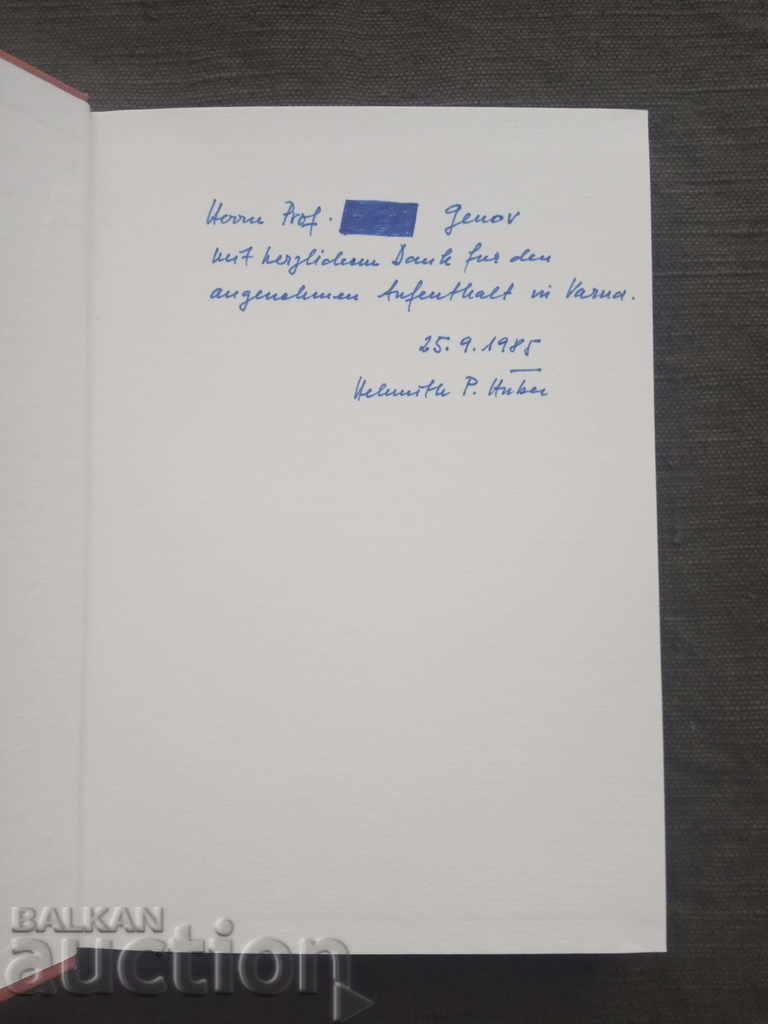 Herrn Prof. Genov
mit herzlichem Dank für den
angenehmen Aufenthalt in Varna.
25.9.1985
Helmuth P. Huber
BALKAN
auction